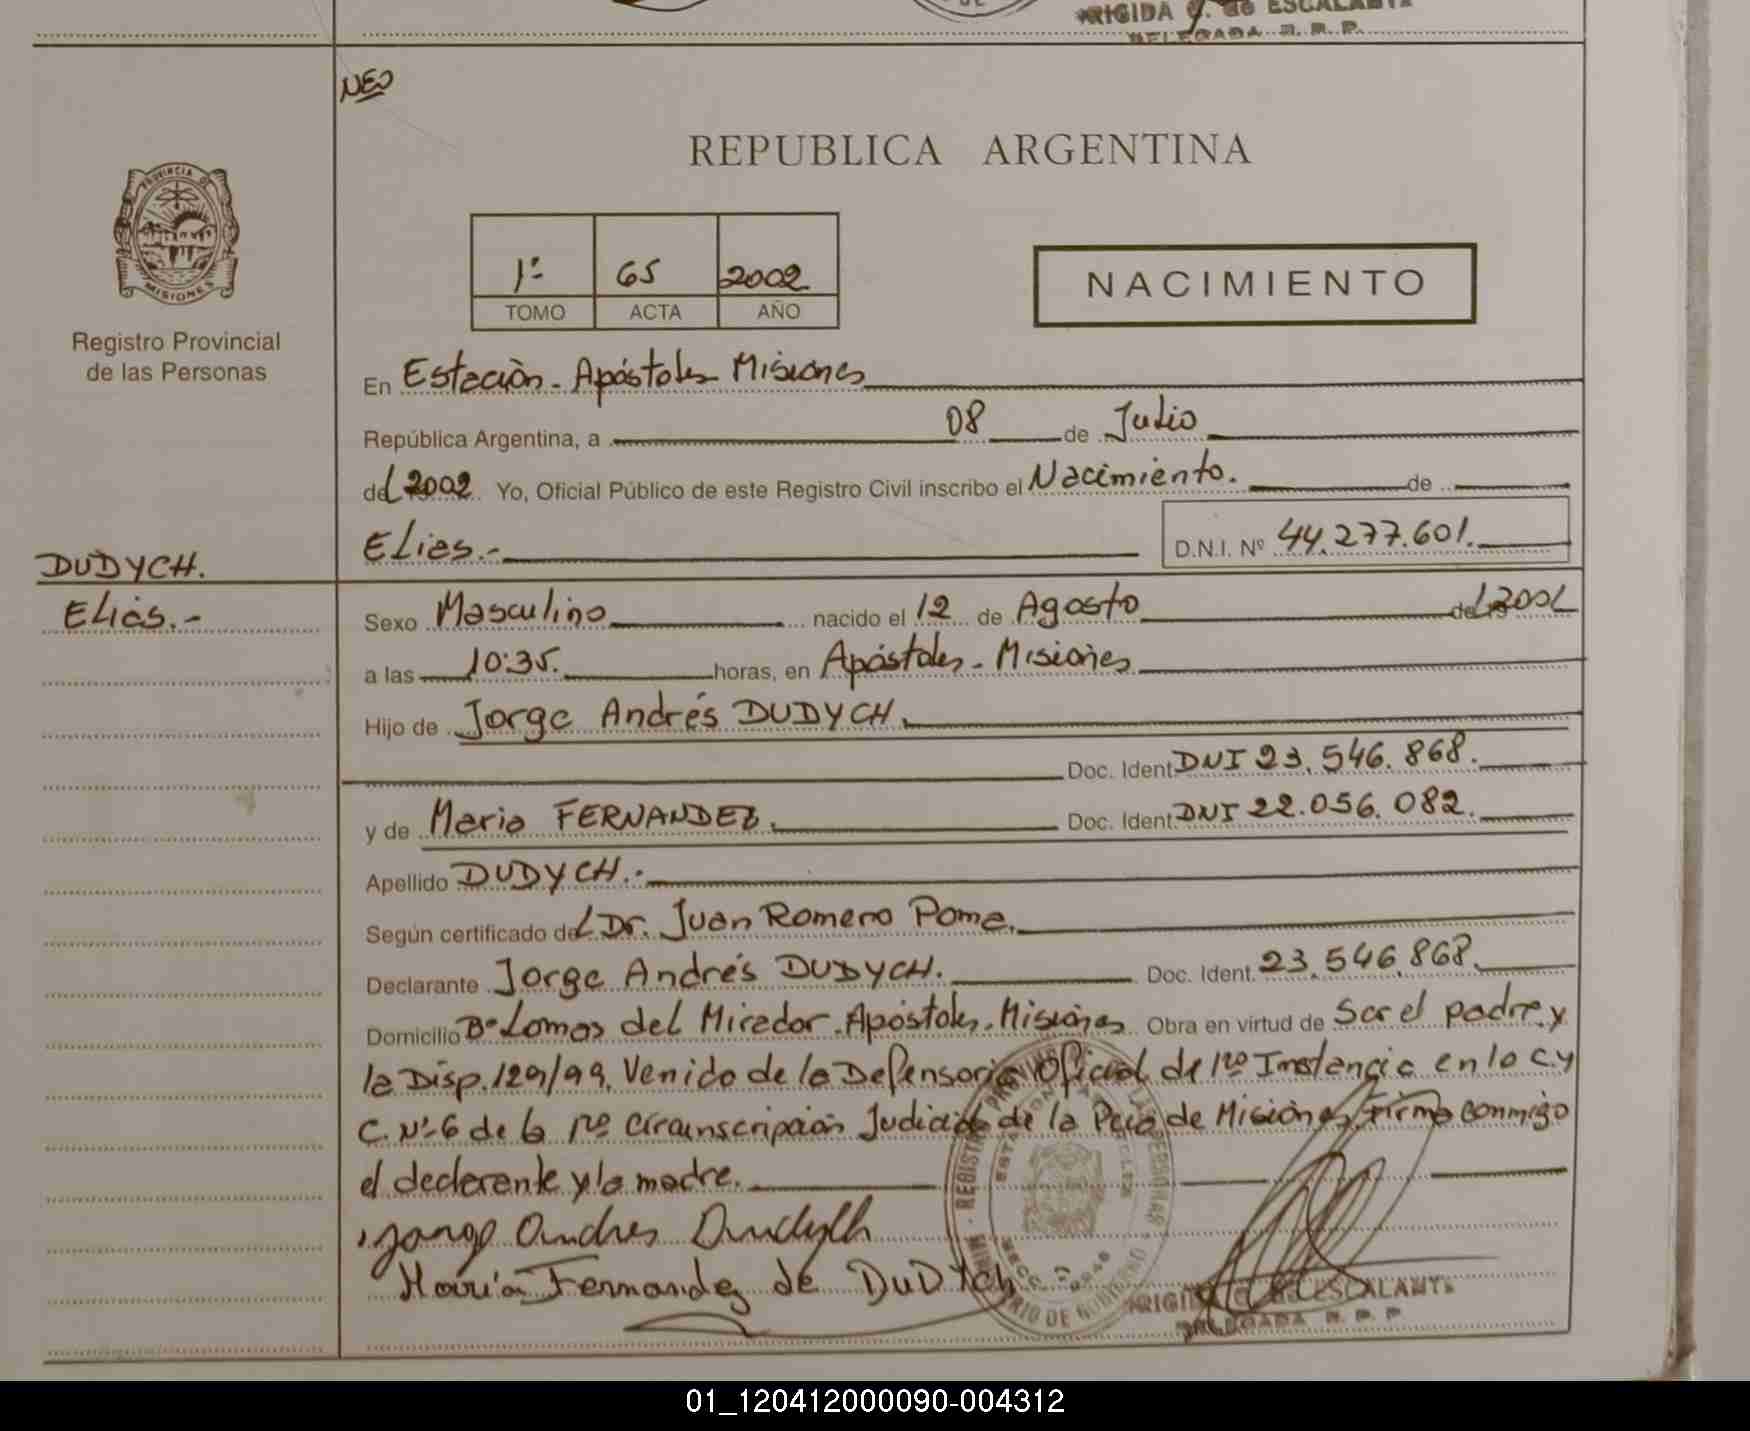 RIGIDA G. de ESCALANTE
DELEGADA R. P. P.
NEO
REPUBLICA ARGENTINA
PROVINCIA DE
MISIONES
Registro Provincial
de las Personas
1º 65 2002
TOMO ACTA AÑO
NACIMIENTO
En Estación - Apóstoles Misiones
República Argentina, a 08 de Julio
del 2002 Yo, Oficial Público de este Registro Civil inscribo el Nacimiento. de
Elias.- D.N.I. Nº 44.277.601.
DUDYCH.
Eliás.-
Sexo Masculino nacido el 12 de Agosto del
a las 10:35. horas, en Apóstoles - Misiones
Hijo de Jorge Andrés DUDYCH.
Doc. Ident. DNI 23.546.868.
y de Maria FERNANDEZ. Doc. Ident. DNI 22.056.082.
Apellido DUDYCH.-
Según certificado del Dr. Juan Romero Pome.
Declarante Jorge Andrés DUDYCH. Doc. Ident. 23.546.868.
Domicilio Bº Lomas del Mirador. Apóstoles. Misiones Obra en virtud de Ser el padre y
la Disp. 129/99. Venido de la Defensoria Oficial de 1ra Instancia en lo C. y
C. Nº 6 de la 1ra Circunscripción Judicial de la Pcia de Misiones, Firma conmigo
el declarente y la madre.
Jorge Andres Dudych
María Fernandez de DUDYch
RIGIDA G. de ESCALANTE
DELEGADA R. P. P.
01_120412000090-004312